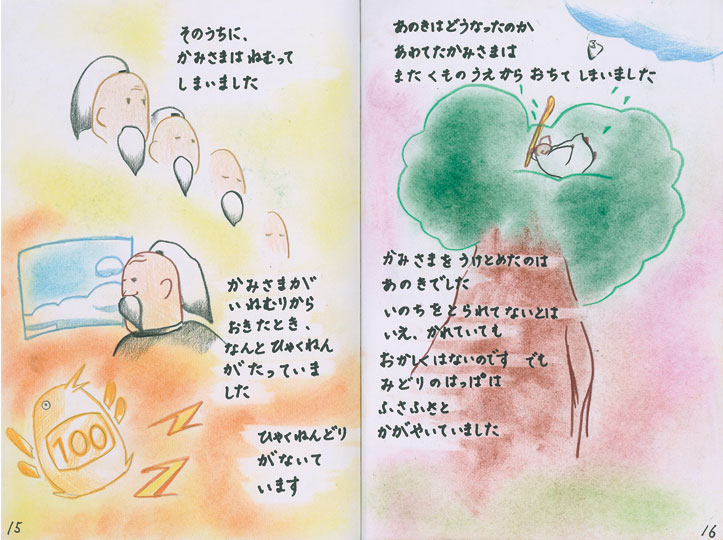 そのうちに、
かみさまは ねむって
しまいました
かみさまが
いねむりから
おきたとき、
なんと ひゃくねん
がたっていま
した
100
ひゃくねんどり
がないて
います
15
あのきはどうなったのか
あわてたかみさまは
また くものうえから おちて しまいました
かみさまを うけとめたのは
あのきでした
いのちをとられてないとは
いえ、かれていても
おかしくはないのです でも
みどりのはっぱは
ふさふさと
かがやいていました
16